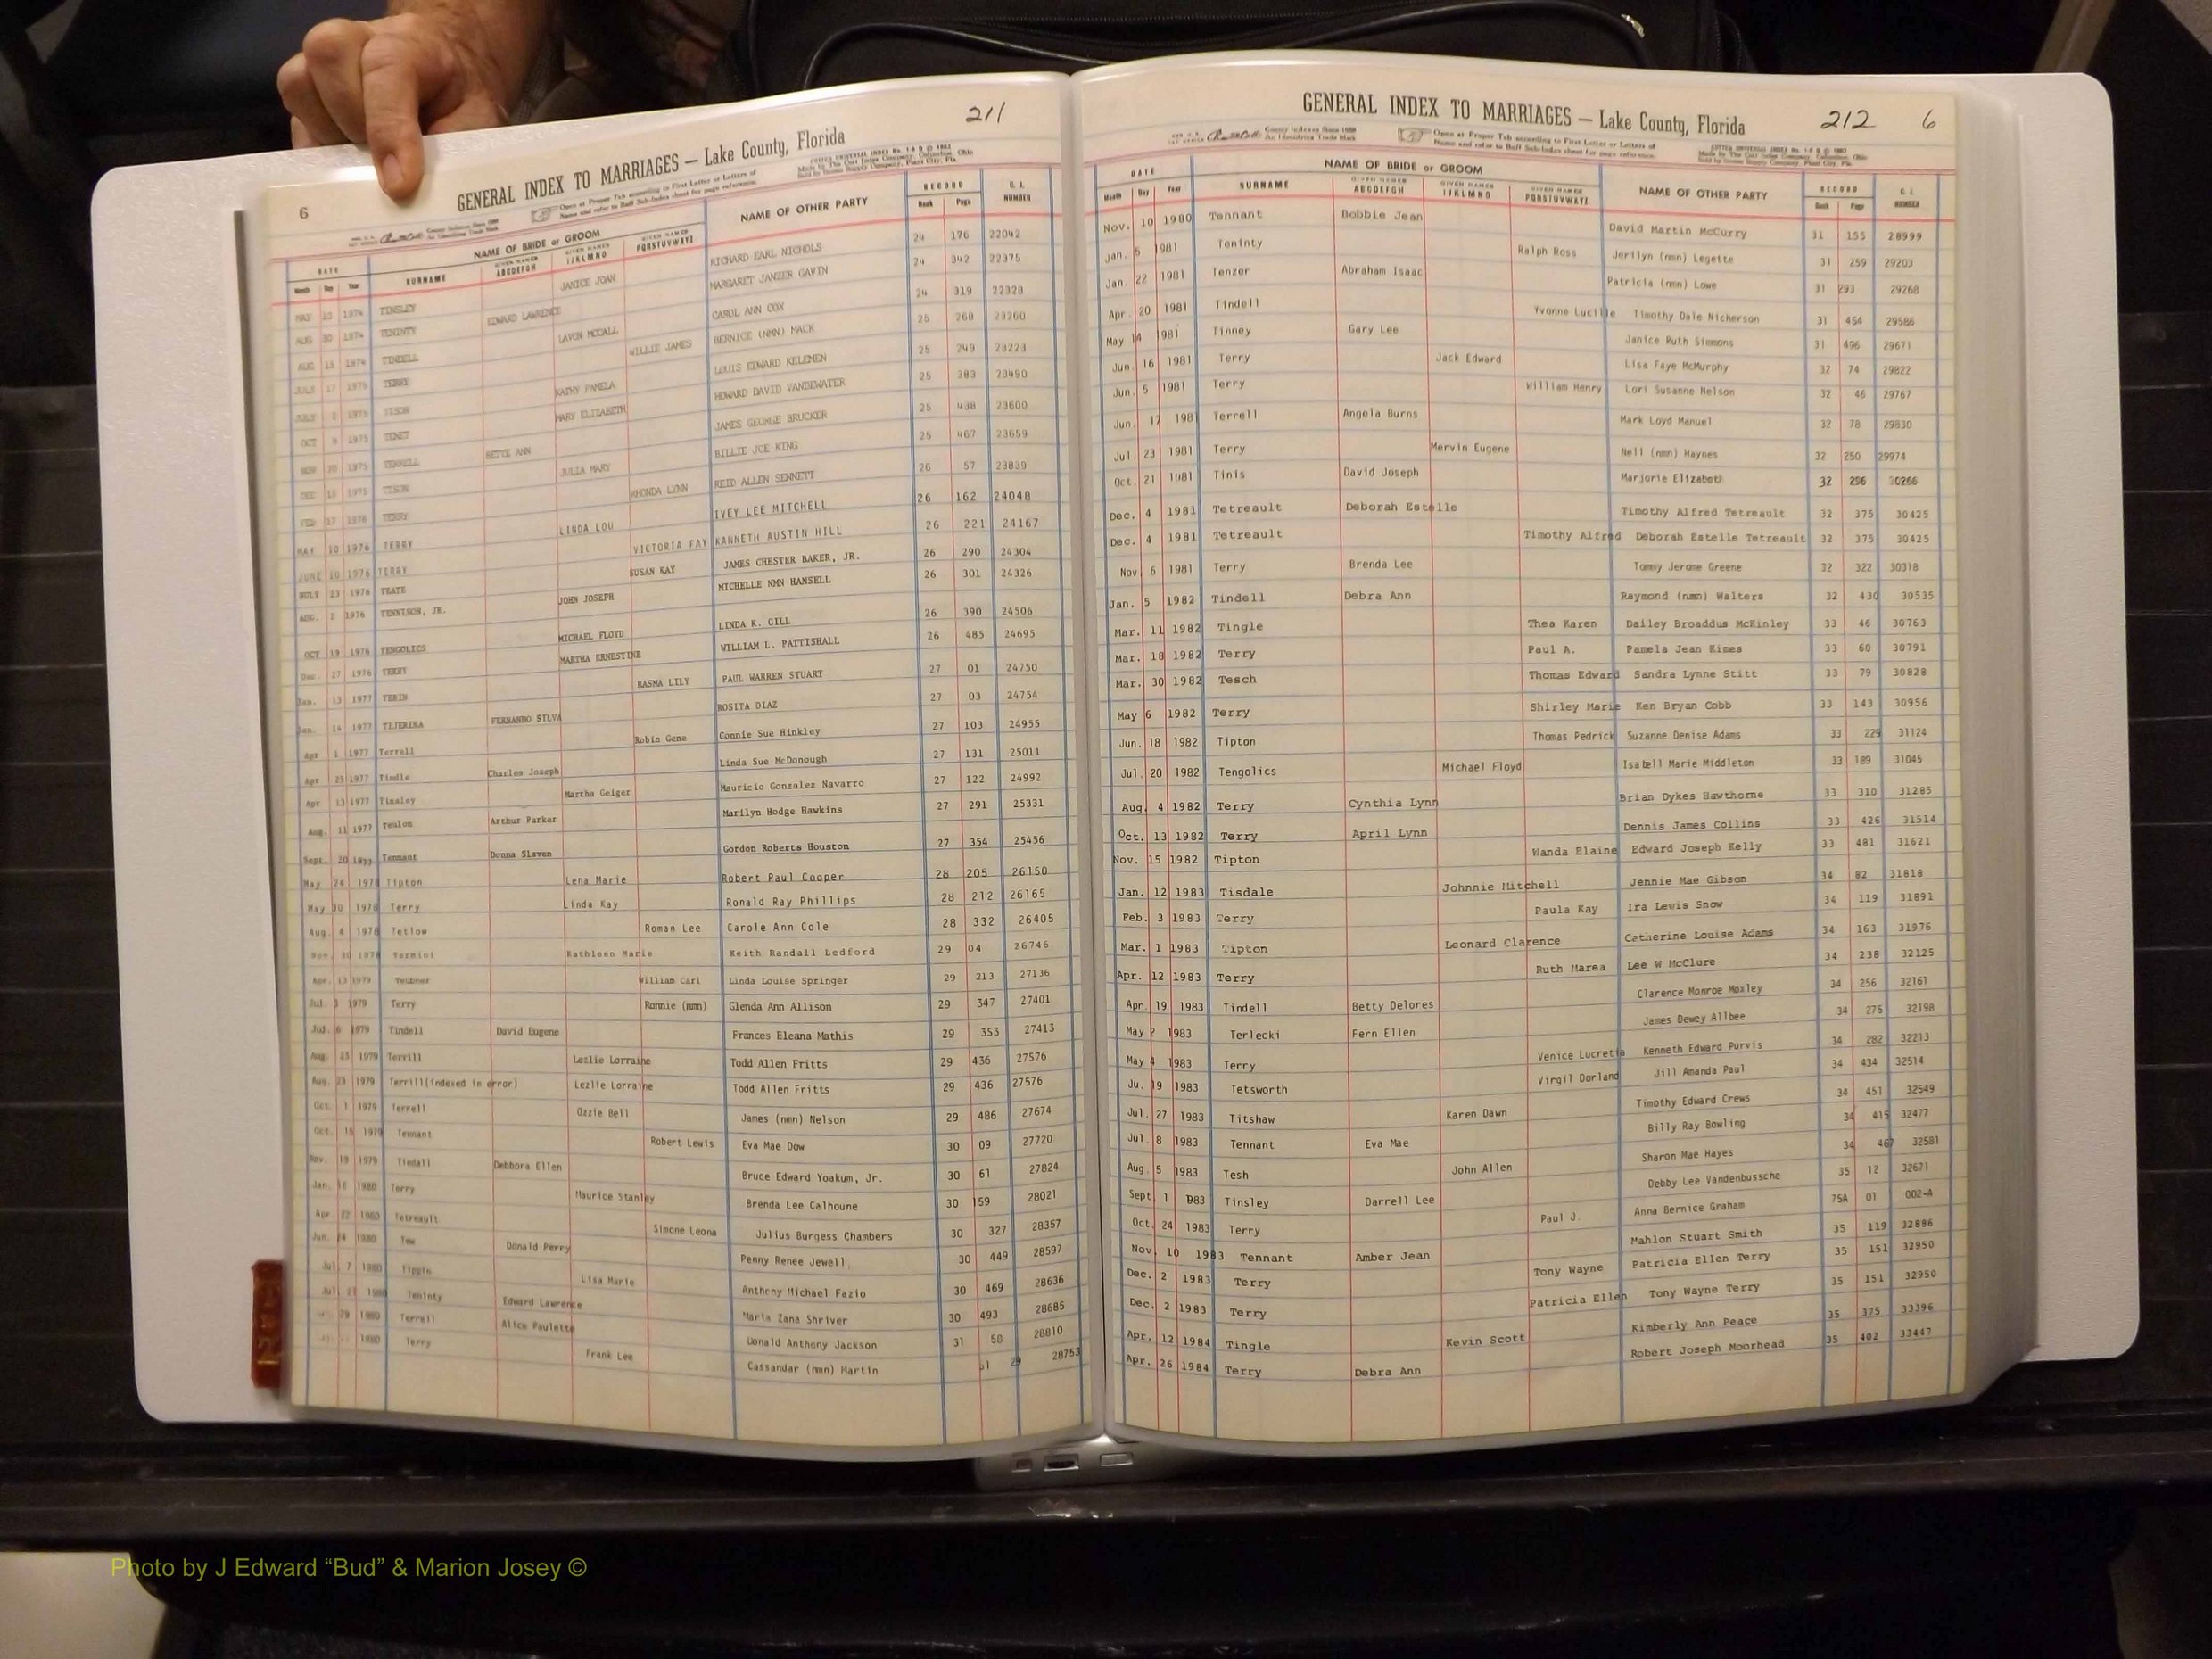 211
GENERAL INDEX TO MARRIAGES — Lake County, Florida
6
NAME OF BRIDE or GROOM NAME OF OTHER PARTY RECORD
DATE SURNAME ABCDEFGH IJKLMNO PQRSTUVWXYZ Book Page NUMBER
Month Day Year
1974 TINSLEY JANICE JOAN RICHARD EARL NICHOLS 24 176 22042
AUG 30 1974 TENINTY EDWARD LAWRENCE MARGARET JANZER GAVIN 24 342 22375
AUG 15 1974 TINDELL LAVON MCCALL CAROL ANN COX 24 319 22328
JULY 17 1975 TERRY WILLIE JAMES BERNICE (NMN) MACK 25 268 23260
JULY 2 1975 TISON KATHY PAMELA LOUIS EDWARD KELEMEN 25 249 23223
OCT 8 1975 TENET MARY ELIZABETH HOWARD DAVID VANDEWATER 25 383 23490
NOV 20 1975 TERRELL BETTE ANN JAMES GEORGE BRUCKER 25 438 23600
DEC 15 1975 TISON JULIA MARY BILLIE JOE KING 25 467 23659
FEB 17 1976 TERRY RHONDA LYNN REID ALLEN SENNETT 26 57 23839
MAY 10 1976 TERRY LINDA LOU IVEY LEE MITCHELL 26 162 24048
JUNE 10 1976 TERRY VICTORIA FAY KANNETH AUSTIN HILL 26 221 24167
JULY 23 1976 TEATE SUSAN KAY JAMES CHESTER BAKER, JR. 26 290 24304
AUG. 2 1976 TENNISON, JR. JOHN JOSEPH MICHELLE NMN HANSELL 26 301 24326
OCT 19 1976 TENGOLICS MICHAEL FLOYD LINDA K. GILL 26 390 24506
Dec. 27 1976 TERRY MARTHA ERNESTINE WILLIAM L. PATTISHALL 26 485 24695
Jan. 13 1977 TERIN RASMA LILY PAUL WARREN STUART 27 01 24750
Jan. 14 1977 TIJERINA FERNANDO SILVA ROSITA DIAZ 27 03 24754
Apr 1 1977 Terrell Robin Gene Connie Sue Hinkley 27 103 24955
Apr 25 1977 Tindle Charles Joseph Linda Sue McDonough 27 131 25011
Apr 13 1977 Tinsley Martha Geiger Mauricio Gonzalez Navarro 27 122 24992
Aug. 11 1977 Teulon Arthur Parker Marilyn Hodge Hawkins 27 291 25331
Sept. 20 1977 Tennant Donna Slaven Gordon Roberts Houston 27 354 25456
May 24 1978 Tipton Lena Marie Robert Paul Cooper 28 205 26150
May 30 1978 Terry Linda Kay Ronald Ray Phillips 28 212 26165
Aug. 4 1978 Tetlow Roman Lee Carole Ann Cole 28 332 26405
Nov. 30 1978 Termini Kathleen Marie Keith Randall Ledford 29 04 26746
Apr. 13 1979 Teubner William Carl Linda Louise Springer 29 213 27136
Jul. 3 1979 Terry Ronnie (nmn) Glenda Ann Allison 29 347 27401
Jul. 6 1979 Tindell David Eugene Frances Eleana Mathis 29 353 27413
Aug. 23 1979 Terrill Lezlie Lorraine Todd Allen Fritts 29 436 27576
Aug. 23 1979 Terrill(indexed in error) Lezlie Lorraine Todd Allen Fritts 29 436 27576
Oct. 1 1979 Terrell Ozzie Bell James (nmn) Nelson 29 486 27674
Oct. 15 1979 Tennant Robert Lewis Eva Mae Dow 30 09 27720
Nov. 19 1979 Tindall Debbora Ellen Bruce Edward Yoakum, Jr. 30 61 27824
Jan. 16 1980 Terry Maurice Stanley Brenda Lee Calhoune 30 159 28021
Apr. 22 1980 Tetreault Simone Leona Julius Burgess Chambers 30 327 28357
Jun. 24 1980 Tew Donald Perry Penny Renee Jewell 30 449 28597
Jul. 7 1980 Tippin Lisa Marie Anthony Michael Fazio 30 469 28636
Jul. 21 1980 Teninty Edward Lawrence Maria Zana Shriver 30 493 28685
29 1980 Terrell Alice Paulette Donald Anthony Jackson 31 58 28810
1980 Terry Frank Lee Cassandar (nmn) Martin 31 29 28753
GENERAL INDEX TO MARRIAGES — Lake County, Florida
212 6
NAME OF BRIDE or GROOM NAME OF OTHER PARTY RECORD
DATE SURNAME ABCDEFGH IJKLMNO PQRSTUVWXYZ Book Page NUMBER
Month Day Year
Nov. 10 1980 Tennant Bobbie Jean David Martin McCurry 31 155 28999
Jan. 5 1981 Teninty Ralph Ross Jerilyn (nmn) Legette 31 259 29203
Jan. 22 1981 Tenzer Abraham Isaac Patricia (nmn) Lowe 31 293 29268
Apr. 20 1981 Tindell Yvonne Lucille Timothy Dale Nicherson 31 454 29586
May 14 1981 Tinney Gary Lee Janice Ruth Simmons 31 496 29671
Jun. 16 1981 Terry Jack Edward Lisa Faye McMurphy 32 74 29822
Jun. 5 1981 Terry William Henry Lori Susanne Nelson 32 46 29767
Jun. 17 1981 Terrell Angela Burns Mark Loyd Manuel 32 78 29830
Jul. 23 1981 Terry Mervin Eugene Nell (nmn) Haynes 32 250 29974
Oct. 21 1981 Tinis David Joseph Marjorie Elizabeth 32 296 30266
Dec. 4 1981 Tetreault Deborah Estelle Timothy Alfred Tetreault 32 375 30425
Dec. 4 1981 Tetreault Timothy Alfred Deborah Estelle Tetreault 32 375 30425
Nov 6 1981 Terry Brenda Lee Tommy Jerome Greene 32 322 30318
Jan. 5 1982 Tindell Debra Ann Raymond (nmn) Walters 32 430 30535
Mar. 11 1982 Tingle Thea Karen Dailey Broaddus McKinley 33 46 30763
Mar. 18 1982 Terry Paul A. Pamela Jean Kimes 33 60 30791
Mar. 30 1982 Tesch Thomas Edward Sandra Lynne Stitt 33 79 30828
May 6 1982 Terry Shirley Marie Ken Bryan Cobb 33 143 30956
Jun. 18 1982 Tipton Thomas Pedrick Suzanne Denise Adams 33 229 31124
Jul. 20 1982 Tengolics Michael Floyd Isabell Marie Middleton 33 189 31045
Aug. 4 1982 Terry Cynthia Lynn Brian Dykes Hawthorne 33 310 31285
Oct. 13 1982 Terry April Lynn Dennis James Collins 33 426 31514
Nov. 15 1982 Tipton Wanda Elaine Edward Joseph Kelly 33 481 31621
Jan. 12 1983 Tisdale Johnnie Mitchell Jennie Mae Gibson 34 82 31818
Feb. 3 1983 Terry Paula Kay Ira Lewis Snow 34 119 31891
Mar. 1 1983 Tipton Leonard Clarence Catherine Louise Adams 34 163 31976
Apr. 12 1983 Terry Ruth Marea Lee W McClure 34 238 32125
Apr. 19 1983 Tindell Betty Delores Clarence Monroe Moxley 34 256 32161
May 2 1983 Terlecki Fern Ellen James Dewey Allbee 34 275 32198
May 4 1983 Terry Venice Lucretia Kenneth Edward Purvis 34 282 32213
Ju. 19 1983 Tetsworth Virgil Dorland Jill Amanda Paul 34 434 32514
Jul. 27 1983 Titshaw Karen Dawn Timothy Edward Crews 34 451 32549
Jul. 8 1983 Tennant Eva Mae Billy Ray Bowling 34 415 32477
Aug. 5 1983 Tesh John Allen Sharon Mae Hayes 34 467 32581
Sept 1 1983 Tinsley Darrell Lee Debby Lee Vandenbussche 35 12 32671
Oct. 24 1983 Terry Paul J. Anna Bernice Graham 75A 01 002-A
Nov. 10 1983 Tennant Amber Jean Mahlon Stuart Smith 35 119 32886
Dec. 2 1983 Terry Tony Wayne Patricia Ellen Terry 35 151 32950
Dec. 2 1983 Terry Patricia Ellen Tony Wayne Terry 35 151 32950
Apr. 12 1984 Tingle Kevin Scott Kimberly Ann Peace 35 375 33396
Apr. 26 1984 Terry Debra Ann Robert Joseph Moorhead 35 402 33447
Photo by J Edward “Bud” & Marion Josey ©